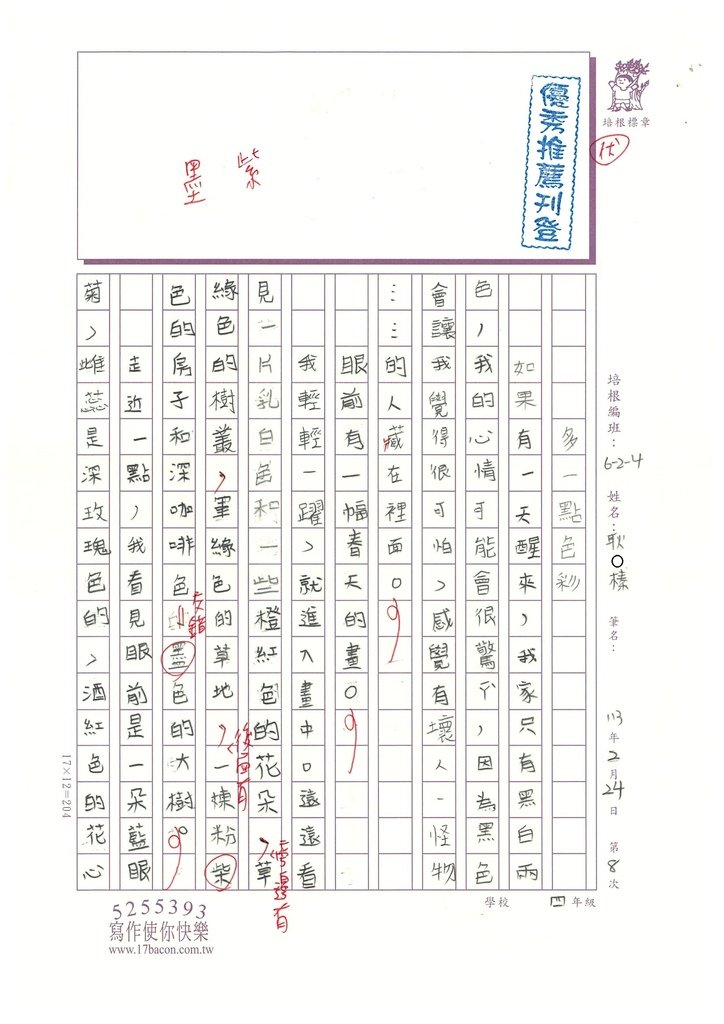 優秀推薦刊登
培根標章
伏
紫
墨
培根編班：6-2-4 姓名：耿○榛 筆名： 113年2月24日 第8次
多一點色彩
如果有一天醒來，我家只有黑白兩
色，我的心情可能會很驚ㄚˋ，因為黑色
會讓我覺得很可怕，感覺有壞人、怪物
……的人藏在裡面。
眼前有一幅春天的畫。
我輕輕一躍，就進入畫中。遠遠看
見一片乳白色和一些橙紅色的花朵，草
旁邊有
綠色的樹叢，軍綠色的草地，一棟粉柴
後面有
色的房子和深咖啡色墨色的大樹。
交錯
走近一點，我看見眼前是一朵藍眼
菊，雌蕊是深玫瑰色的，酒紅色的花心
17×12=204
學校 四年級
5255393
寫作使你快樂
www.17bacon.com.tw